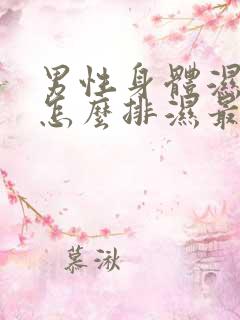 男性身體濕
怎麼排濕最
慕湫